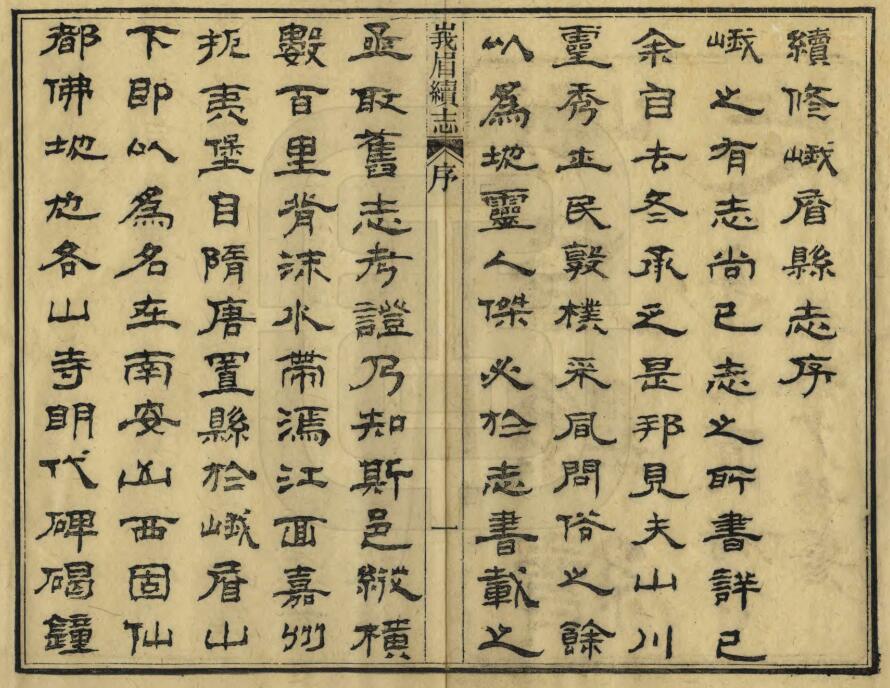 續修峨眉縣志序
峨之有志尚已志之所書詳已
余自去冬承乏是邦見夫山川
靈秀士民敦樸采風問俗之餘
以為地靈人傑必於志書載之
峩眉續志 序 一
亟取舊志考證乃知斯邑縱橫
數百里背沫水帶濛江面嘉州
扼夷堡自隋唐置縣於峨眉山
下即以為名在南安山西固仙
都佛地也各山寺明代碑碣鐘